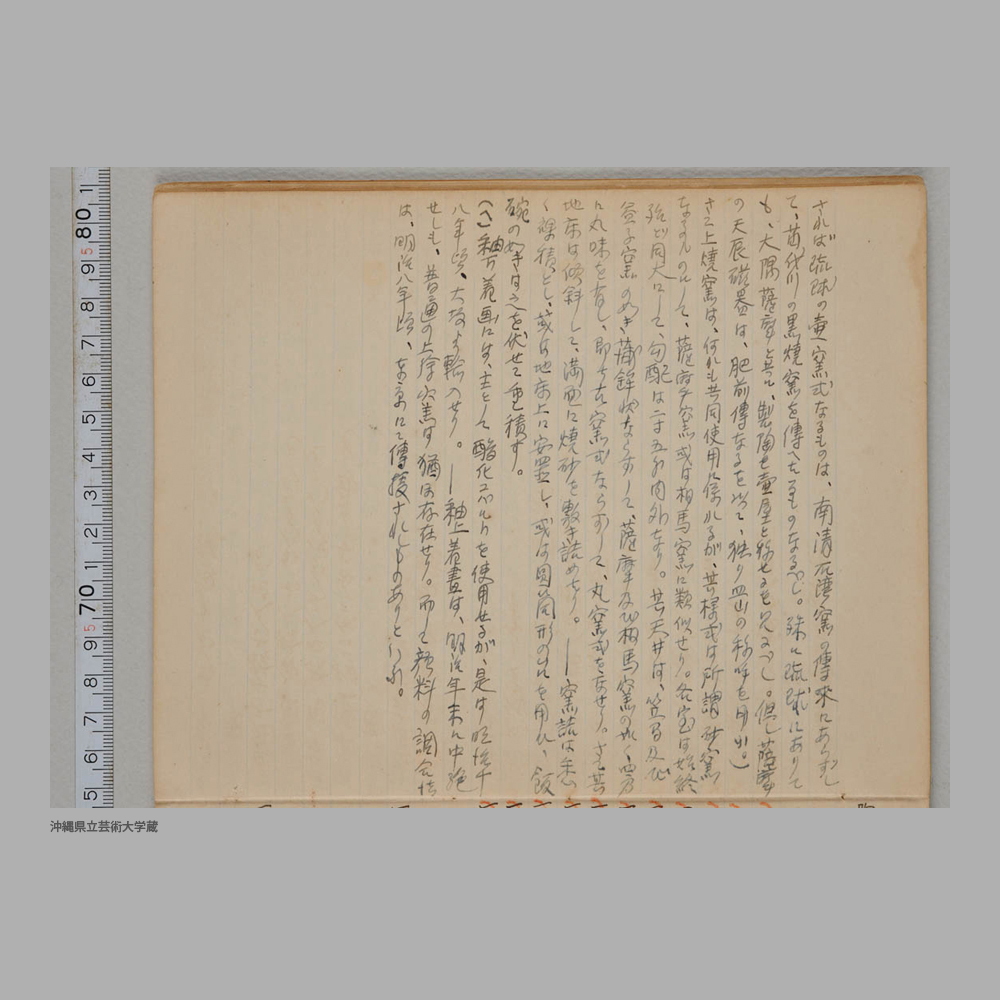 されば琉球の壷窯式なるものは、南清瓦壷窯の傳来にあらずし
て、苗代川の黒焼窯を傳へたるものなるべし。殊に琉球にありて
も、大隅薩摩と共に、製陶を壷屋と称せるを見るべし。但し薩摩
の天辰磁器は、肥前傳なるを以て、独り皿山の称呼を用ふ。)
さて上焼窯は、何れも共同使用に係れるが、其様式は所謂砂窯
なるものにして、薩摩窯或は相馬窯に類似せり。各室は始終
殆ど同大にして、勾配は二寸五分内外なり。其天井は、笠間及び
益子窯の如き擂鉢状ならずして、薩摩及び相馬窯の如く四方
に丸味を有し、即ち古窯式ならずして、丸窯式を なせり。さて其
地床は傾斜して、満面に焼砂を敷き詰めたり。――窯詰は悉
く裸積とし、或は地床上に安置し、或は円筒形の を用ひ、飯
碗の如きは之を伏せて重積す。
(ヘ)釉下着画には、主として酸化コバルトを使用せるが、是は明治十
八年頃、大阪より輸入せり。――釉上着畫は、明治年末に中絶
せしも、普通の上絵窯は猶ほ存在せり。而して顔料の調合法
は、明治八年頃、東京にて傳授されしものありといふ。
80
70
沖縄県立芸術大学蔵